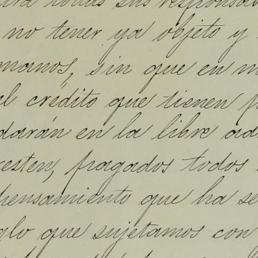 todas sus responsab
no tener ya objeto y
manos, sin que en m
el crédito que tienen p
darán en la libre ad
esten, pagados todos
pensamiento que ha se
glo que sujetamos con